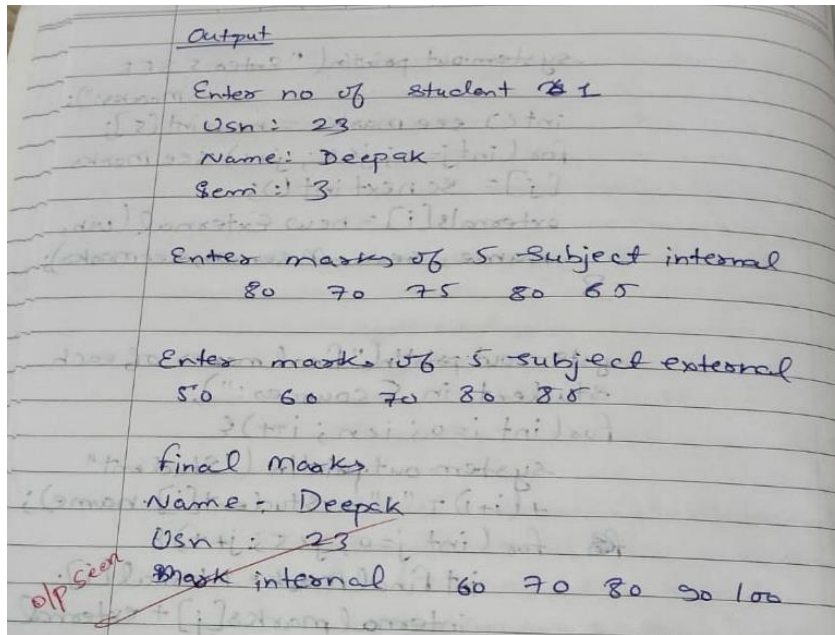 Output
Enter no of student 1
Usn: 23
Name: Deepak
Sem: 3
Enter marks of 5 Subject internal
80 70 75 80 65
Enter marks of 5 subject external
50 60 70 80 85
final marks
Name - Deepak
Usn : 23
Mark internal 60 70 80 90 100
o/p seen